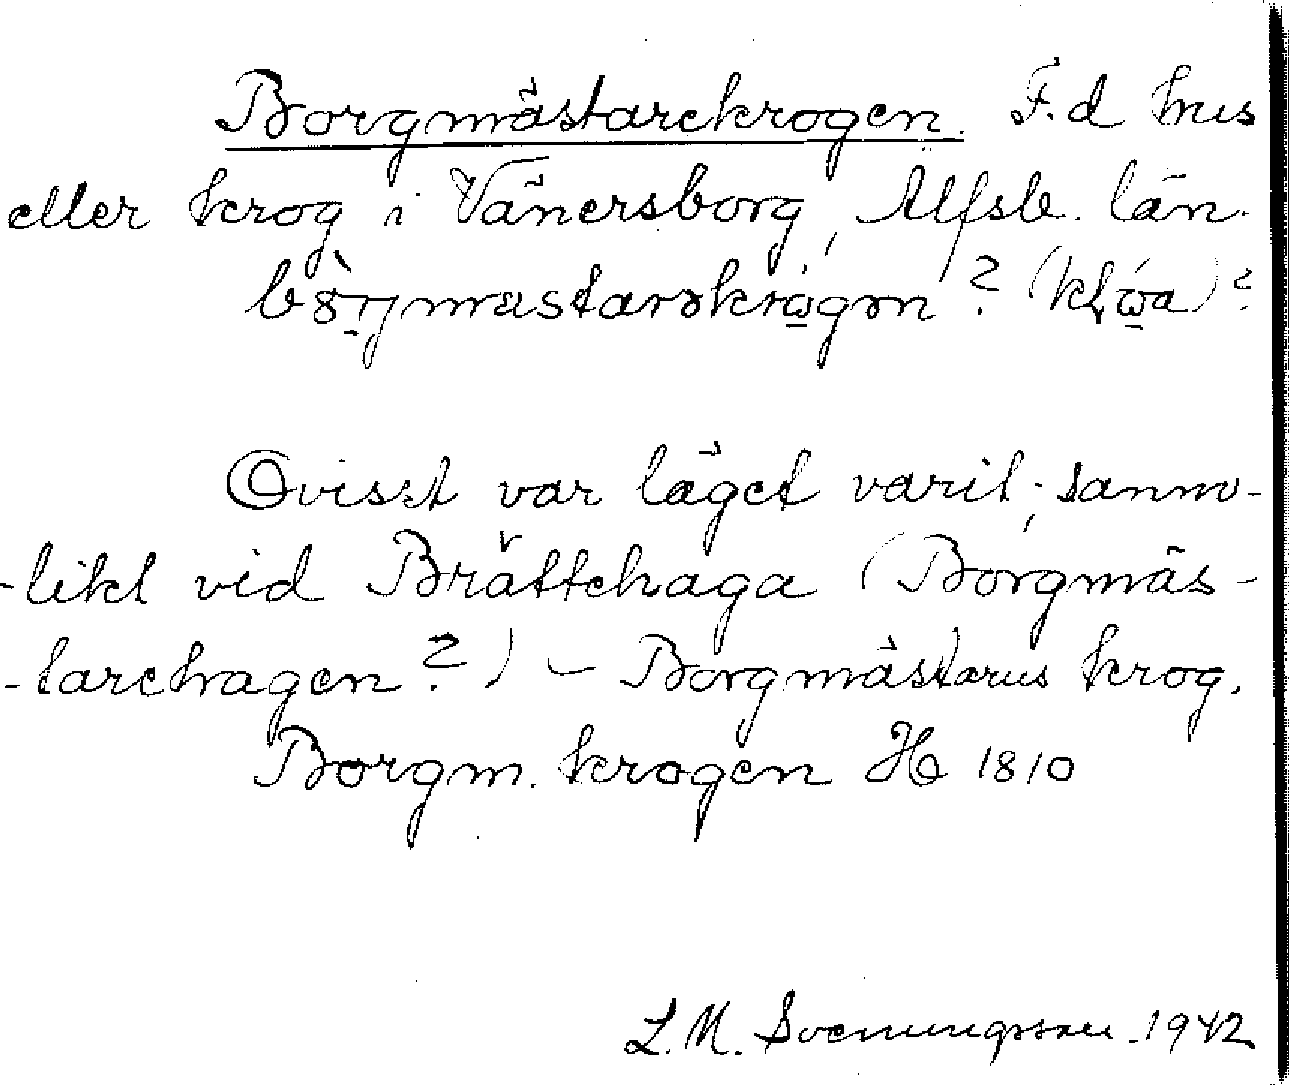 Borgmästarekrogen. F.d hus
eller krog i Vänersborg, Älfsb. län.
Ovisst var läget varit; sanno-
-likt vid Brättehaga (Borgmäs-
-tarehagen?) – Borgmästarens krog.
Borgm. krogen H 1810
L.M. Svenungsson. 1942